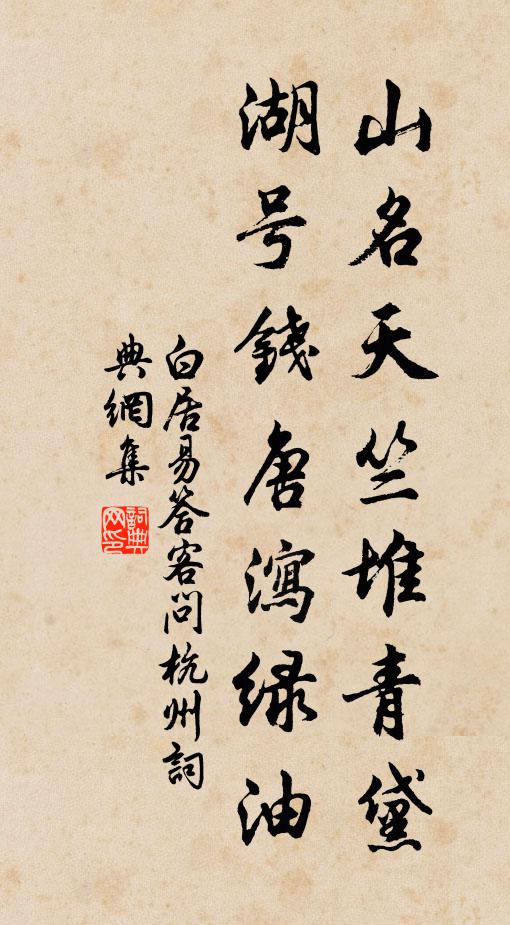 山名天竺堆青黛
湖号錢唐瀉绿油
白居易答客问杭州詞
典網集
詞典網印